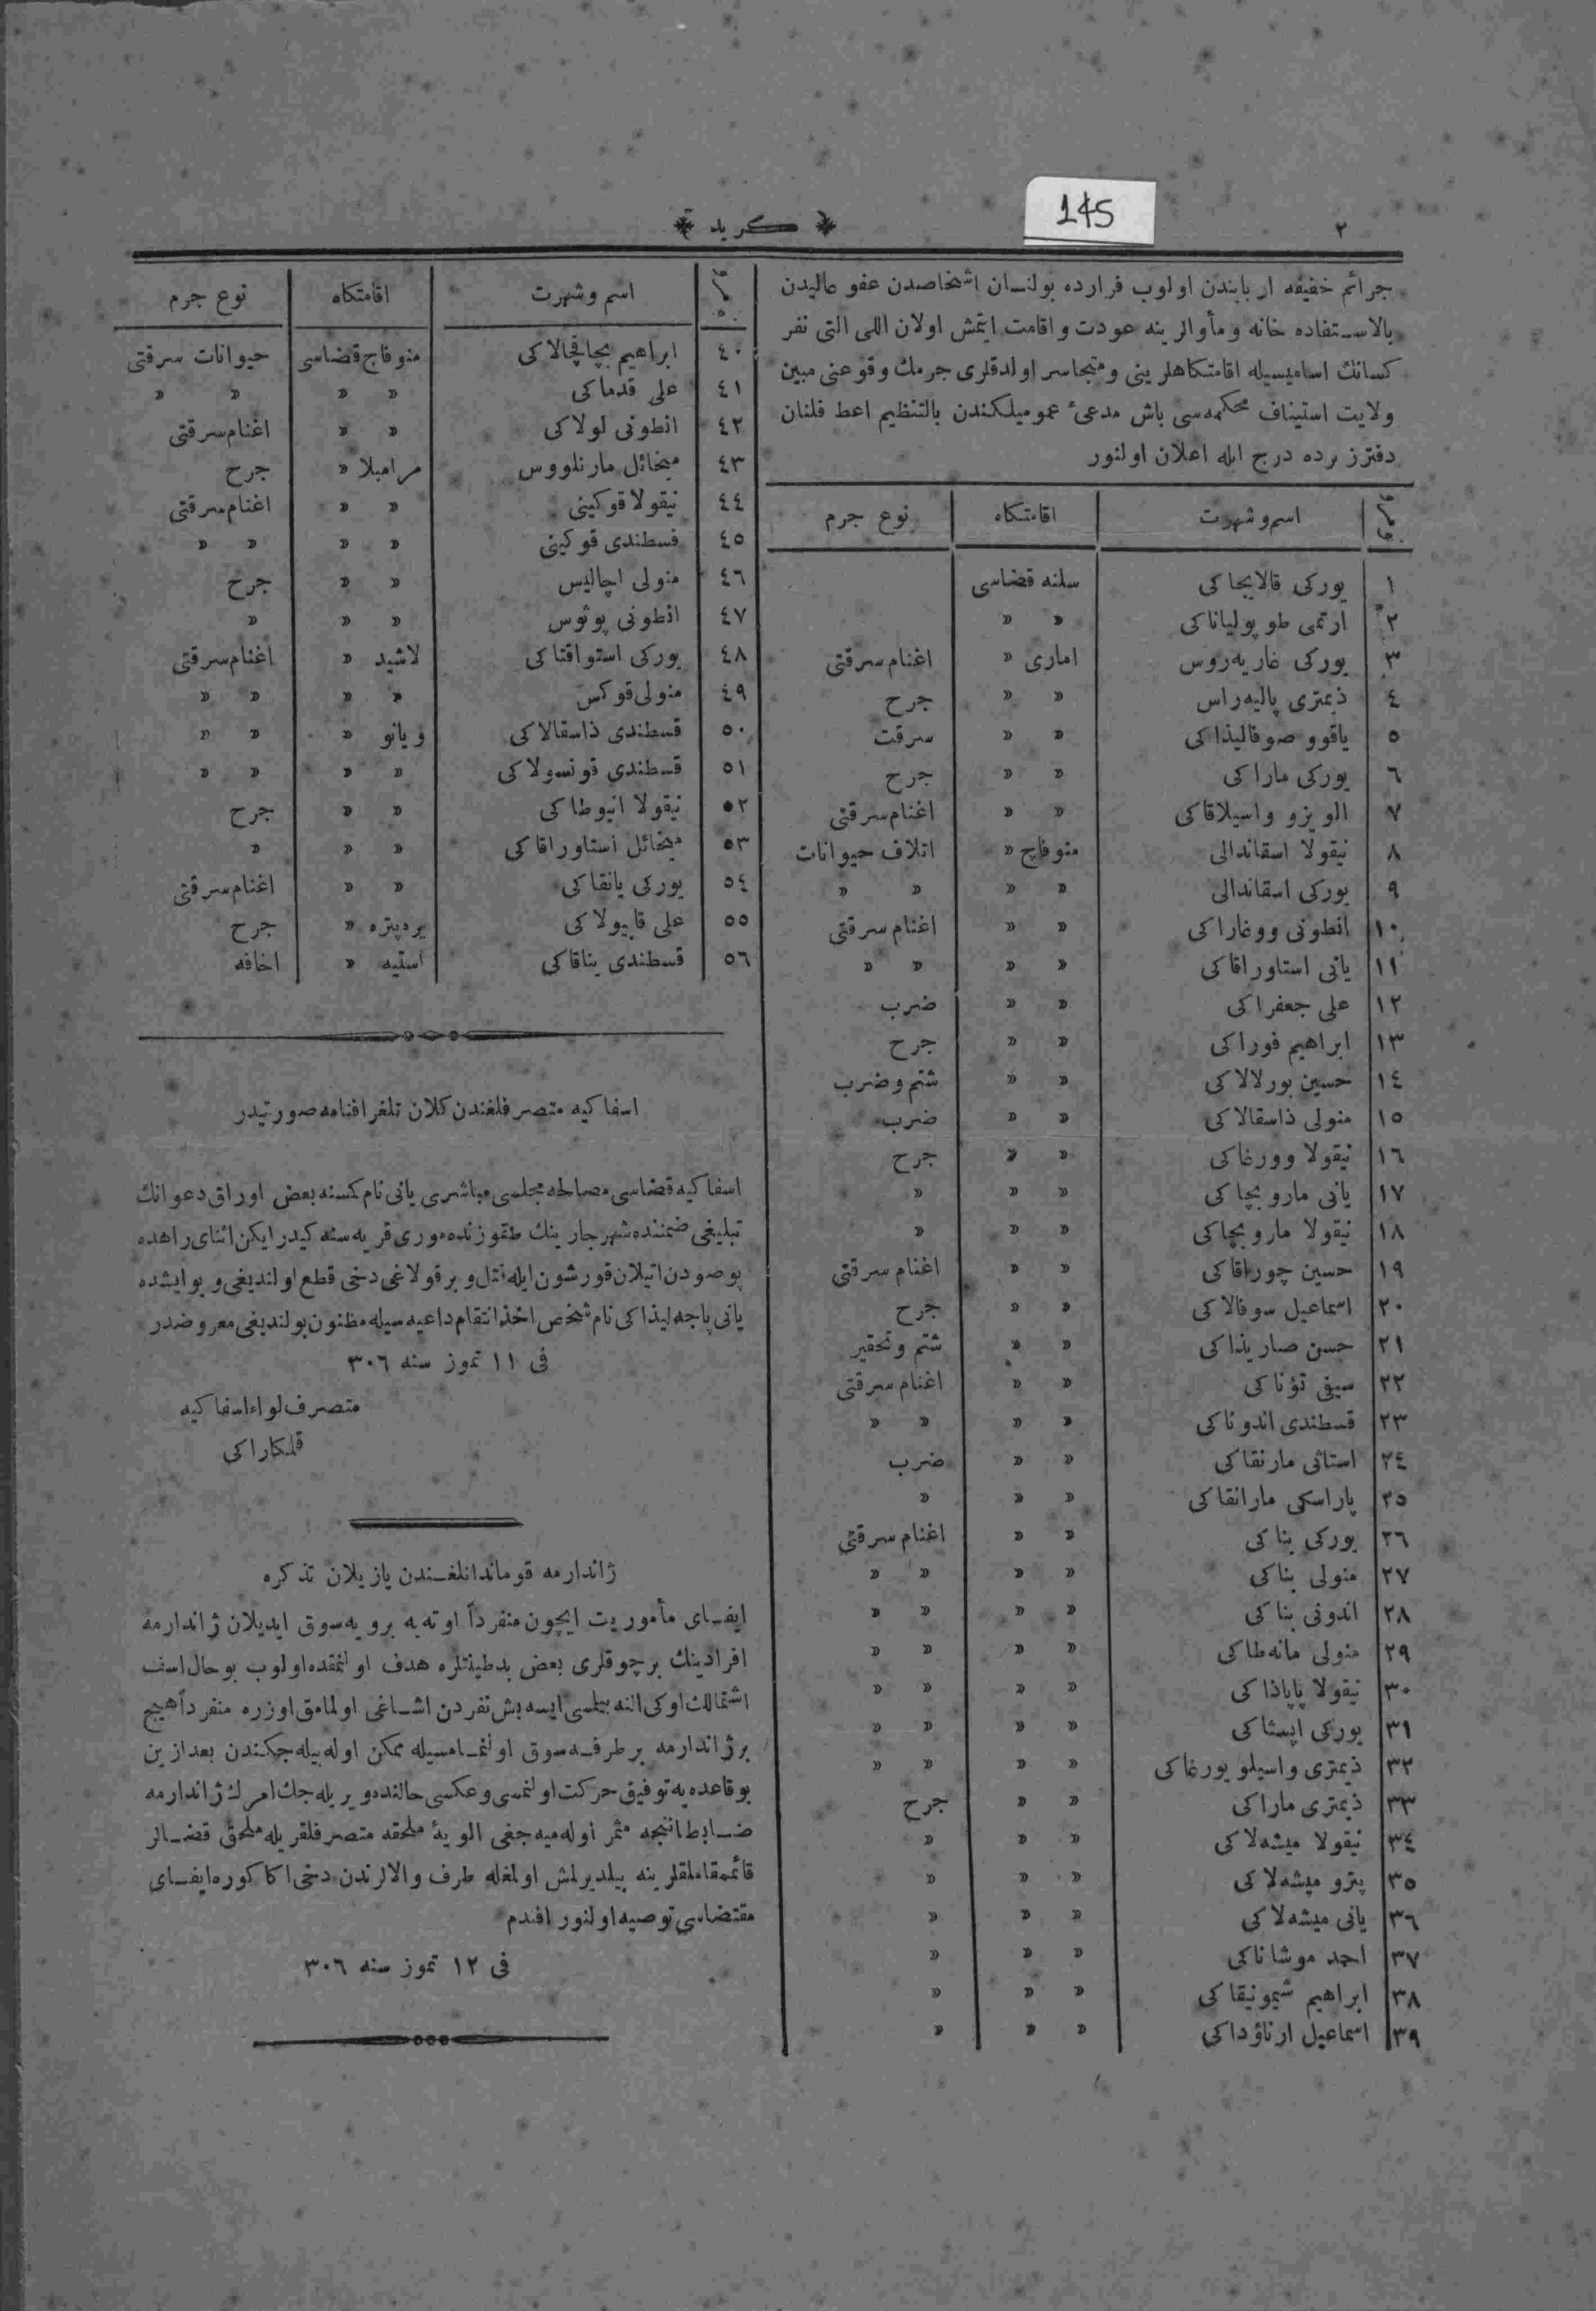 145
٢
﴿ كريد ﴾
جرائم خفيفه اربابندن اولوب فرارده بولنان اشخاصدن عفو عاليدن
بالاستفاده خانه و مأوالرينه عودت و اقامت ايتمش اولان اللی التی نفر
كسانك اساميسيله اقامتكاهلرينی و متجاسر اولدقلری جرمك وقوعنی مبين
ولايت استيناف محكمه‌سی باش مدعیٔ عموميلكندن بالتنظيم اعطا قلنان
دفترز برده درج ايله اعلان اولنور
اسم و شهرت اقامتكاه نوع جرم
١ يوركی قالايجاكی سلنه قضاسی
٢ ارتمی طوپوليناكی » »
٣ يوركی غاريه‌روس اماری » اغنام سرقتی
٤ ذيمتری پاليه‌راس » » جرح
٥ ياقوو صوقاليذاكی » » سرقت
٦ يوركی ماراكی » » جرح
٧ الويزو واسيلاقاكی » » اغنام سرقتی
٨ نيقولا اسقاندالی منوفاچ » اتلاف حيوانات
٩ يوركی اسقاندالی » » » »
١٠ انطونی ووغاراكی » » اغنام سرقتی
١١ يانی استاوراقاكی » » » »
١٢ علی جعفراكی » » ضرب
١٣ ابراهيم فوراكی » » جرح
١٤ حسين بورلالاكی » » شتم و ضرب
١٥ منولی ذاسقالاكی » » ضرب
١٦ نيقولا وورغاكی » » جرح
١٧ يانی ماروبچاكی » » »
١٨ نيقولا ماروبچاكی » » »
١٩ حسين چوراقاكی » » اغنام سرقتی
٢٠ اسماعيل سوفالاكی » » جرح
٢١ حسن صاريذاكی » » شتم و تحقير
٢٢ سيفی تؤناكی » » اغنام سرقتی
٢٣ قسطندی اندوناكی » » » »
٢٤ استاثی مارنقاكی » » ضرب
٢٥ پاراسكی مارانقاكی » » »
٢٦ يوركی بناكی » » اغنام سرقتی
٢٧ منولی بناكی » » » »
٢٨ اندونی بناكی » » » »
٢٩ منولی مانه‌طاكی » » » »
٣٠ نيقولا پاپاذاكی » » » »
٣١ يوركی اپسثاكی » » » »
٣٢ ذيمتری واسيلو يورغاكی » » » »
٣٣ ذيمتری ماراكی » » جرح
٣٤ نيقولا ميشه‌لاكی » » »
٣٥ پترو ميشه‌لاكی » » »
٣٦ يانی ميشه‌لاكی » » »
٣٧ احمد موشاناكی » » »
٣٨ ابراهيم شيمونيقاكی » » »
٣٩ اسماعيل ارناؤداكی » » »
اسم و شهرت اقامتكاه نوع جرم
٤٠ ابراهيم بچاقچالاكی منوفاچ قضاسی حيوانات سرقتی
٤١ علی قدماكی » » » »
٤٢ انطونی لولاكی » » اغنام سرقتی
٤٣ ميخائل مارنلووس مرامبلا » جرح
٤٤ نيقولا قوكينی » » اغنام سرقتی
٤٥ قسطندی قوكينی » » » »
٤٦ منولی اچاليس » » جرح
٤٧ انطونی پوثوس » » »
٤٨ يوركی استواقتاكی لاشيد » اغنام سرقتی
٤٩ منولی قوكس » » » »
٥٠ قسطندی ذاسقالاكی ويانو » » »
٥١ قسطندی قونسولاكی » » » »
٥٢ نيقولا انيوطاكی » » جرح
٥٣ ميخائل استاوراقاكی » » »
٥٤ يوركی يانقاكی » » اغنام سرقتی
٥٥ علی قاپيولاكی يرهپتره » جرح
٥٦ قسطندی بناقاكی استيه » اخافه
اسفاكيه متصرفلغندن كلان تلغرافنامه صورتيدر
اسفاكيه قضاسی مصالحه مجلسی مباشری يانی نام كسنه بعض اوراق دعوانك
تبليغی ضمننده شهر جارينك طقوزنده موری قريه‌سنه كيدر ايكن اثنای راهده
پوصودن اتيلان قورشون ايله قتل و بر قولاغی دخی قطع اولنديغی و بو ايشده
يانی پاجه‌ليذاكی نام شخص اخذ انتقام داعيه‌سيله مظنون بولنديغی معروضدر
فی ١١ تموز سنه ٣٠٦
متصرف لواء اسفاكيه
قلكاراكی
ژاندارمه قوماندانلغندن يازيلان تذكره
ايفای مأموريت ايچون منفرداً اوته‌يه برويه سوق ايديلان ژاندارمه
افرادينك برچوقلری بعض بدطينتلره هدف اولمقده اولوب بو حال اسف
اشتمالك اوكی النه بيلمسی ايسه بش نفردن اشاغی اولمامق اوزره منفرداً هيچ
بر ژاندارمه بر طرفه سوق اولنمامسيله ممكن اوله بيله جكندن بعد ازين
بو قاعده‌يه توفيق حركت اولنمسی و عكسی حالنده ويريله جك امرك ژاندارمه
ضابطاننجه مثمر اوله‌ميه جغی الويهٔ ملحقه متصرفلقريله ملحق قضالر
قائممقاملقلرينه بيلديرلمش اولمغله طرف والالرندن دخی اكا كوره ايفای
مقتضاسی توصيه اولنور افندم
فی ١٢ تموز سنه ٣٠٦